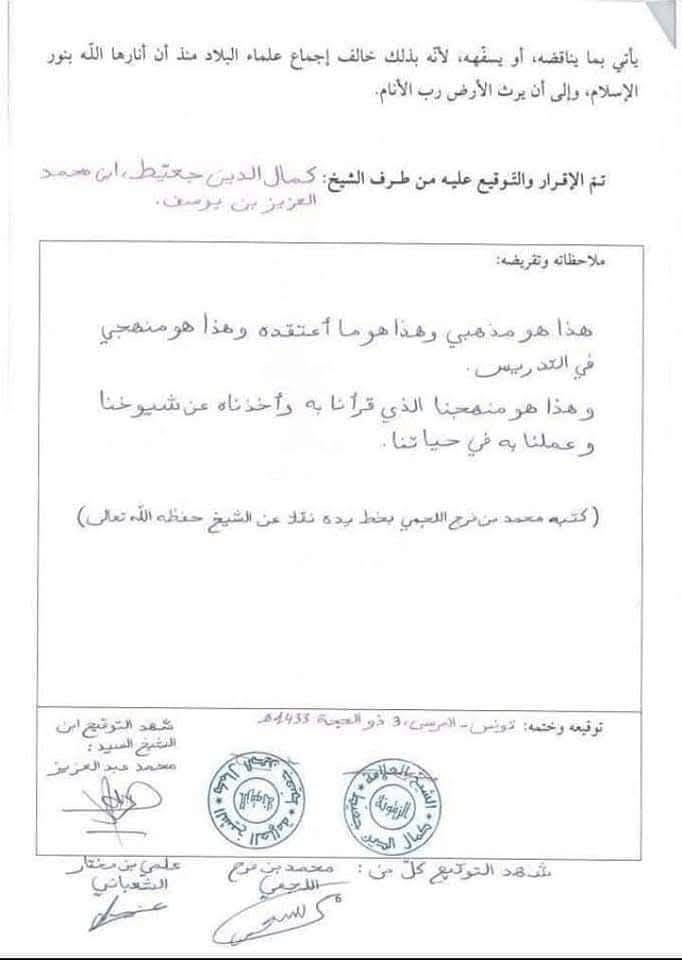 يأتي بما يناقضه، أو يسفّهه، لأنّه بذلك خالف إجماع علماء البلاد منذ أن أنارها الله بنور
الإسلام، وإلى أن يرث الأرض رب الأنام.
تمّ الإقرار والتّوقيع عليه من طرف الشيخ: كمال الدين جعيّط، ابن محمد
العزيز بن يوسف.
ملاحظاته وتقريضه:
هذا هو مذهبي وهذا هو ما أعتقده وهذا هو منهجي
في التدريس.
وهذا هو منهجنا الذي قرأنا به وأخذناه عن شيوخنا
وعملنا به في حياتنا.
(كتبه محمد بن فرج اللجمي بخط يده نقلا عن الشيخ حفظه الله تعالى)
توقيعه وختمه: تونس - المرسى، 3 ذو الحجة 1433هـ
شهد التوقيع ابن
الشيخ السيد:
محمد عبد العزيز
الشيخ العلامة
كمال الدين جعيط
الزيتونة
الشيخ العلامة
كمال الدين جعيط
الزيتونة
شهد التوقيع كلّ من: محمد بن فرج
اللجمي
علمي بن مختار
الشعباني